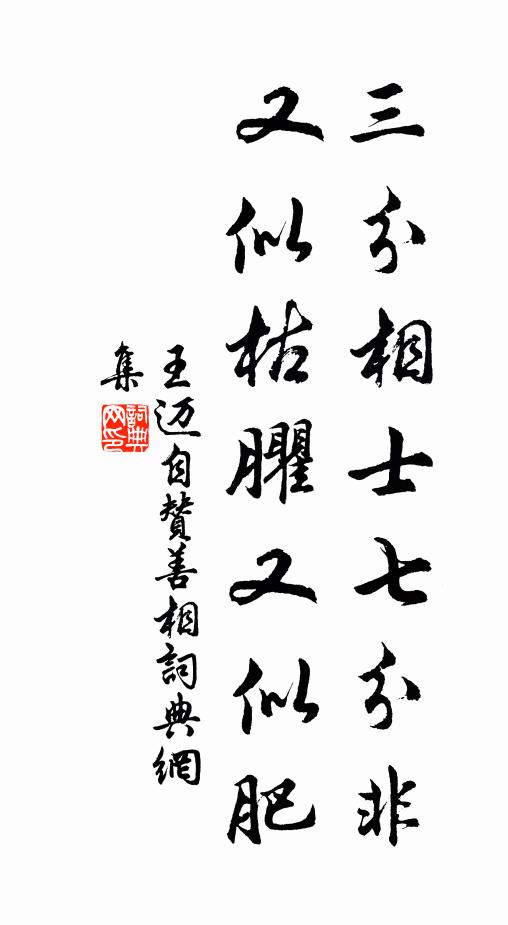 三分相士七分非
又似枯臞又似肥
王迈自贊善相詞典網
集
詞典
网印